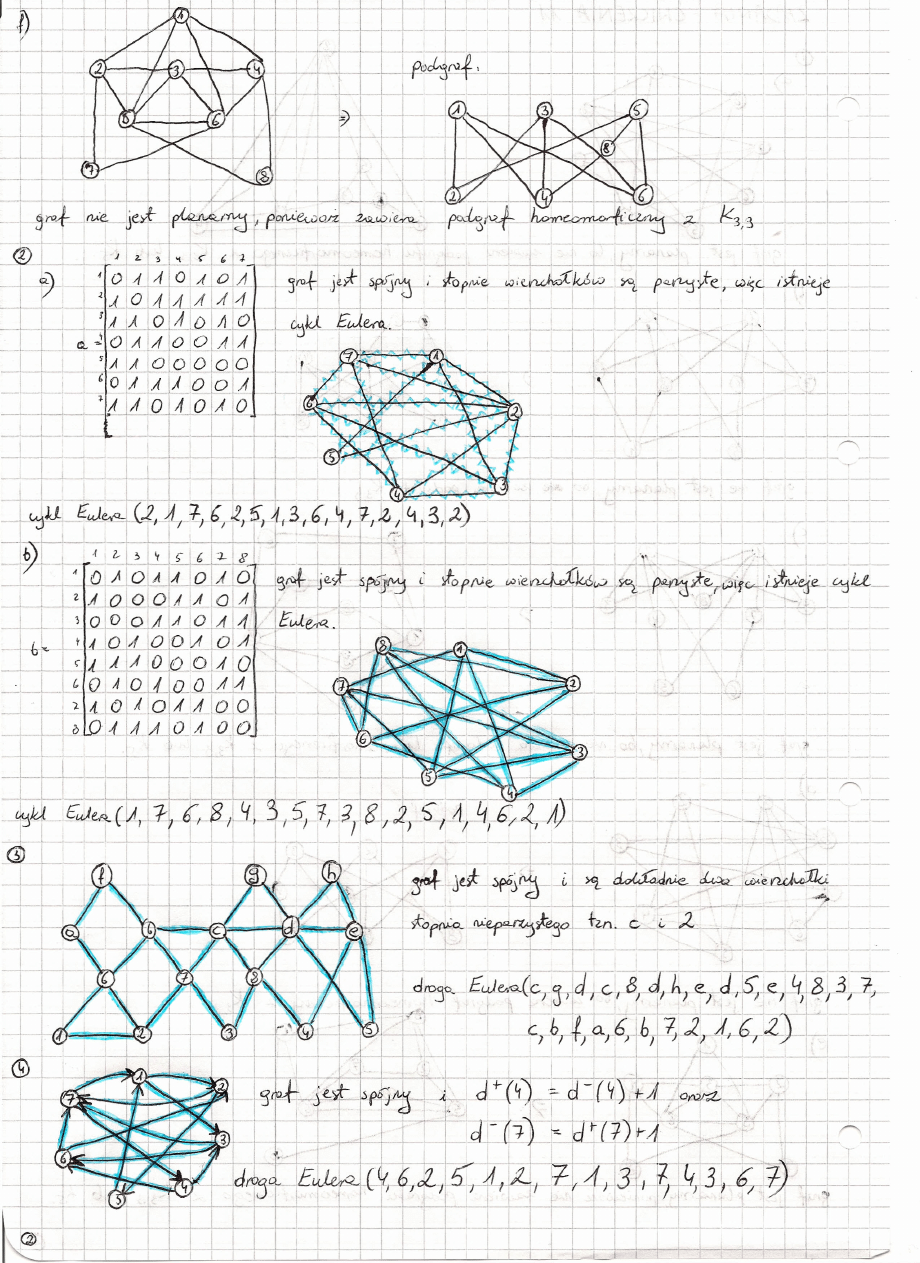 f)
1
2 3 4
5 6
7 8
⇒
podgraf:
1 3 5
8
2 4 6
graf nie jest planarny, ponieważ zawiera podgraf homeomorficzny z K3,3
②
a)
1 2 3 4 5 6 7
1 0 1 1 0 1 0 1
2 1 0 1 1 1 1 1
3 1 1 0 1 0 1 0
a = 4 0 1 1 0 0 1 1
5 1 1 0 0 0 0 0
6 0 1 1 1 0 0 1
7 1 1 0 1 0 1 0
graf jest spójny i stopnie wierzchołków są parzyste, więc istnieje
cykl Eulera.
7 1
6 2
5
4 3
cykl Eulera (2, 1, 7, 6, 2, 5, 1, 3, 6, 4, 7, 2, 4, 3, 2)
b)
1 2 3 4 5 6 7 8
1 0 1 0 1 1 0 1 0
2 1 0 0 0 1 1 0 1
3 0 0 0 1 1 0 1 1
b = 4 1 0 1 0 0 1 0 1
5 1 1 1 0 0 0 1 0
6 0 1 0 1 0 0 1 1
2 1 0 1 0 1 1 0 0
8 0 1 1 1 0 1 0 0
graf jest spójny i stopnie wierzchołków są parzyste, więc istnieje cykl
Eulera.
8 1
7 2
6 3
5 4
cykl Eulera (1, 7, 6, 8, 4, 3, 5, 7, 3, 8, 2, 5, 1, 4, 6, 2, 1)
③
f g h
a b c d e
6 7 8
1 2 3 4 5
graf jest spójny i są dokładnie dwa wierzchołki
stopnia nieparzystego tzn. c i 2
droga Eulera (c, g, d, c, 8, d, h, e, d, 5, e, 4, 8, 3, 7,
c, b, f, a, 6, b, 7, 2, 1, 6, 2)
④
1 2
7
3
6
5 4
graf jest spójny i d⁺(4) = d⁻(4)+1 oraz
d⁻(7) = d⁺(7)+1
droga Eulera (4, 6, 2, 5, 1, 2, 7, 1, 3, 7, 4, 3, 6, 7)
②